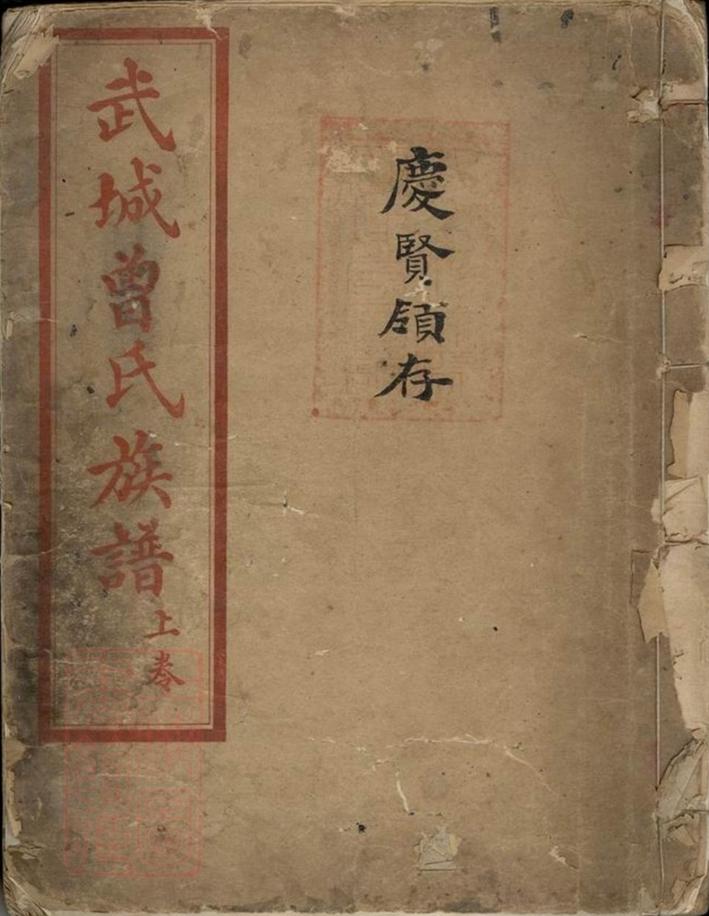 慶賢領存
武城曾氏族譜
上卷